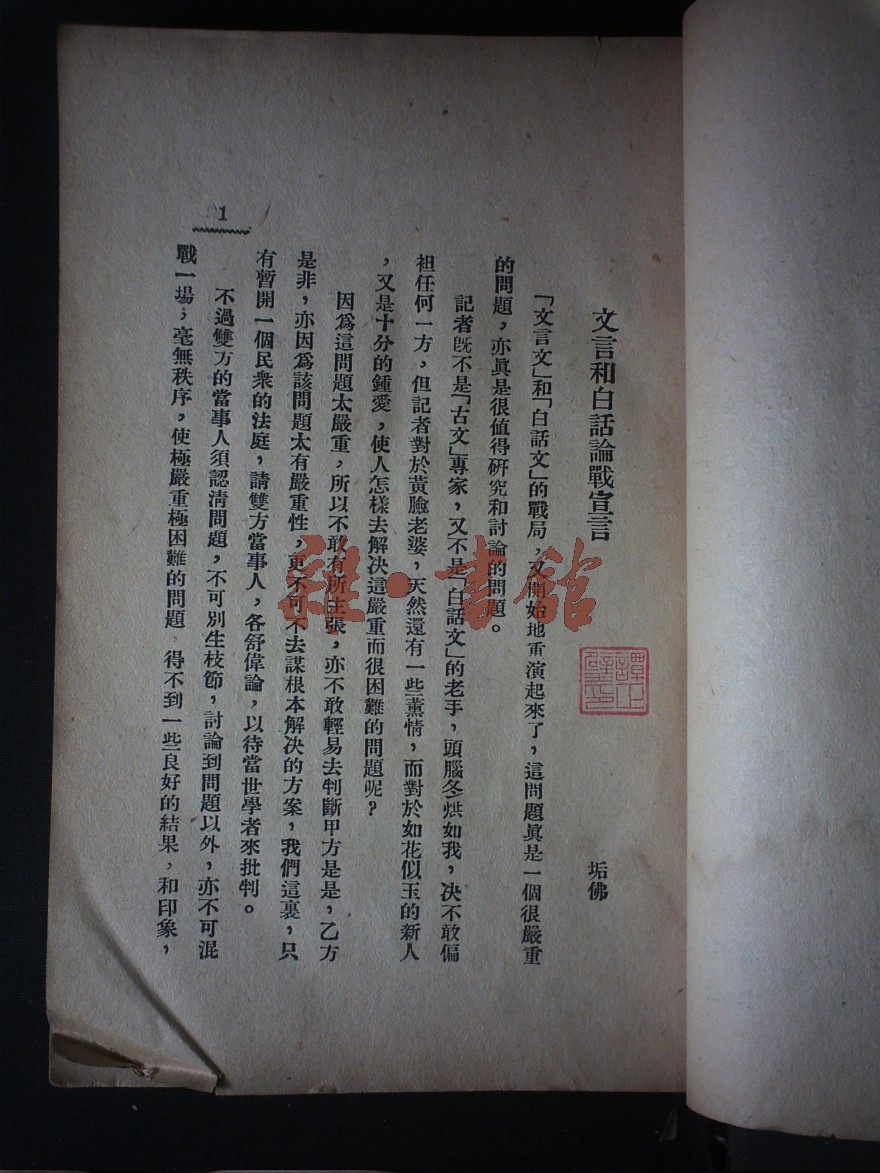 文言和白話論戰宣言
垢佛
「文言文」和「白話文」的戰局，又開始地重演起來了，這問題眞是一個很嚴重
的問題，亦眞是很值得研究和討論的問題。
記者旣不是「古文」專家，又不是「白話文」的老手，頭腦冬烘如我，决不敢偏
袒任何一方，但記者對於黃臉老婆，天然還有一些薰情，而對於如花似玉的新人
，又是十分的鍾愛，使人怎樣去解决這嚴重而很困難的問題呢？
因爲這問題太嚴重，所以不敢有所主張，亦不敢輕易去判斷甲方是是，乙方
是非，亦因爲該問題太有嚴重性，更不可不去謀根本解决的方案，我們這裏，只
有暫開一個民衆的法庭，請雙方當事人，各舒偉論，以待當世學者來批判。
不過雙方的當事人須認淸問題，不可別生枝節，討論到問題以外，亦不可混
戰一場，毫無秩序，使極嚴重極困難的問題，得不到一些良好的結果，和印象，
1
雜·書館
譚正璧印